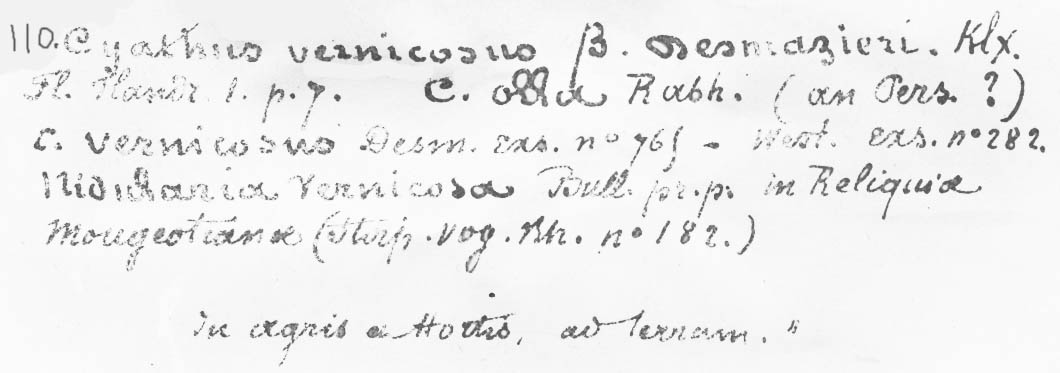 110. Cyathus vernicosus β. Desmazieri. Klx.
Fl. Flandr. 1. p. 7. C. olla Rabh. (an Pers. ?)
C. vernicosus Desm. exs. nº 765 - West. exs. nº 282.
Nidularia Vernicosa Bull. pr. p. in Reliquiæ
Mougeotianæ (Stirp. vog. Rh. nº 182.)
In agris & Hortis, ad terram. "